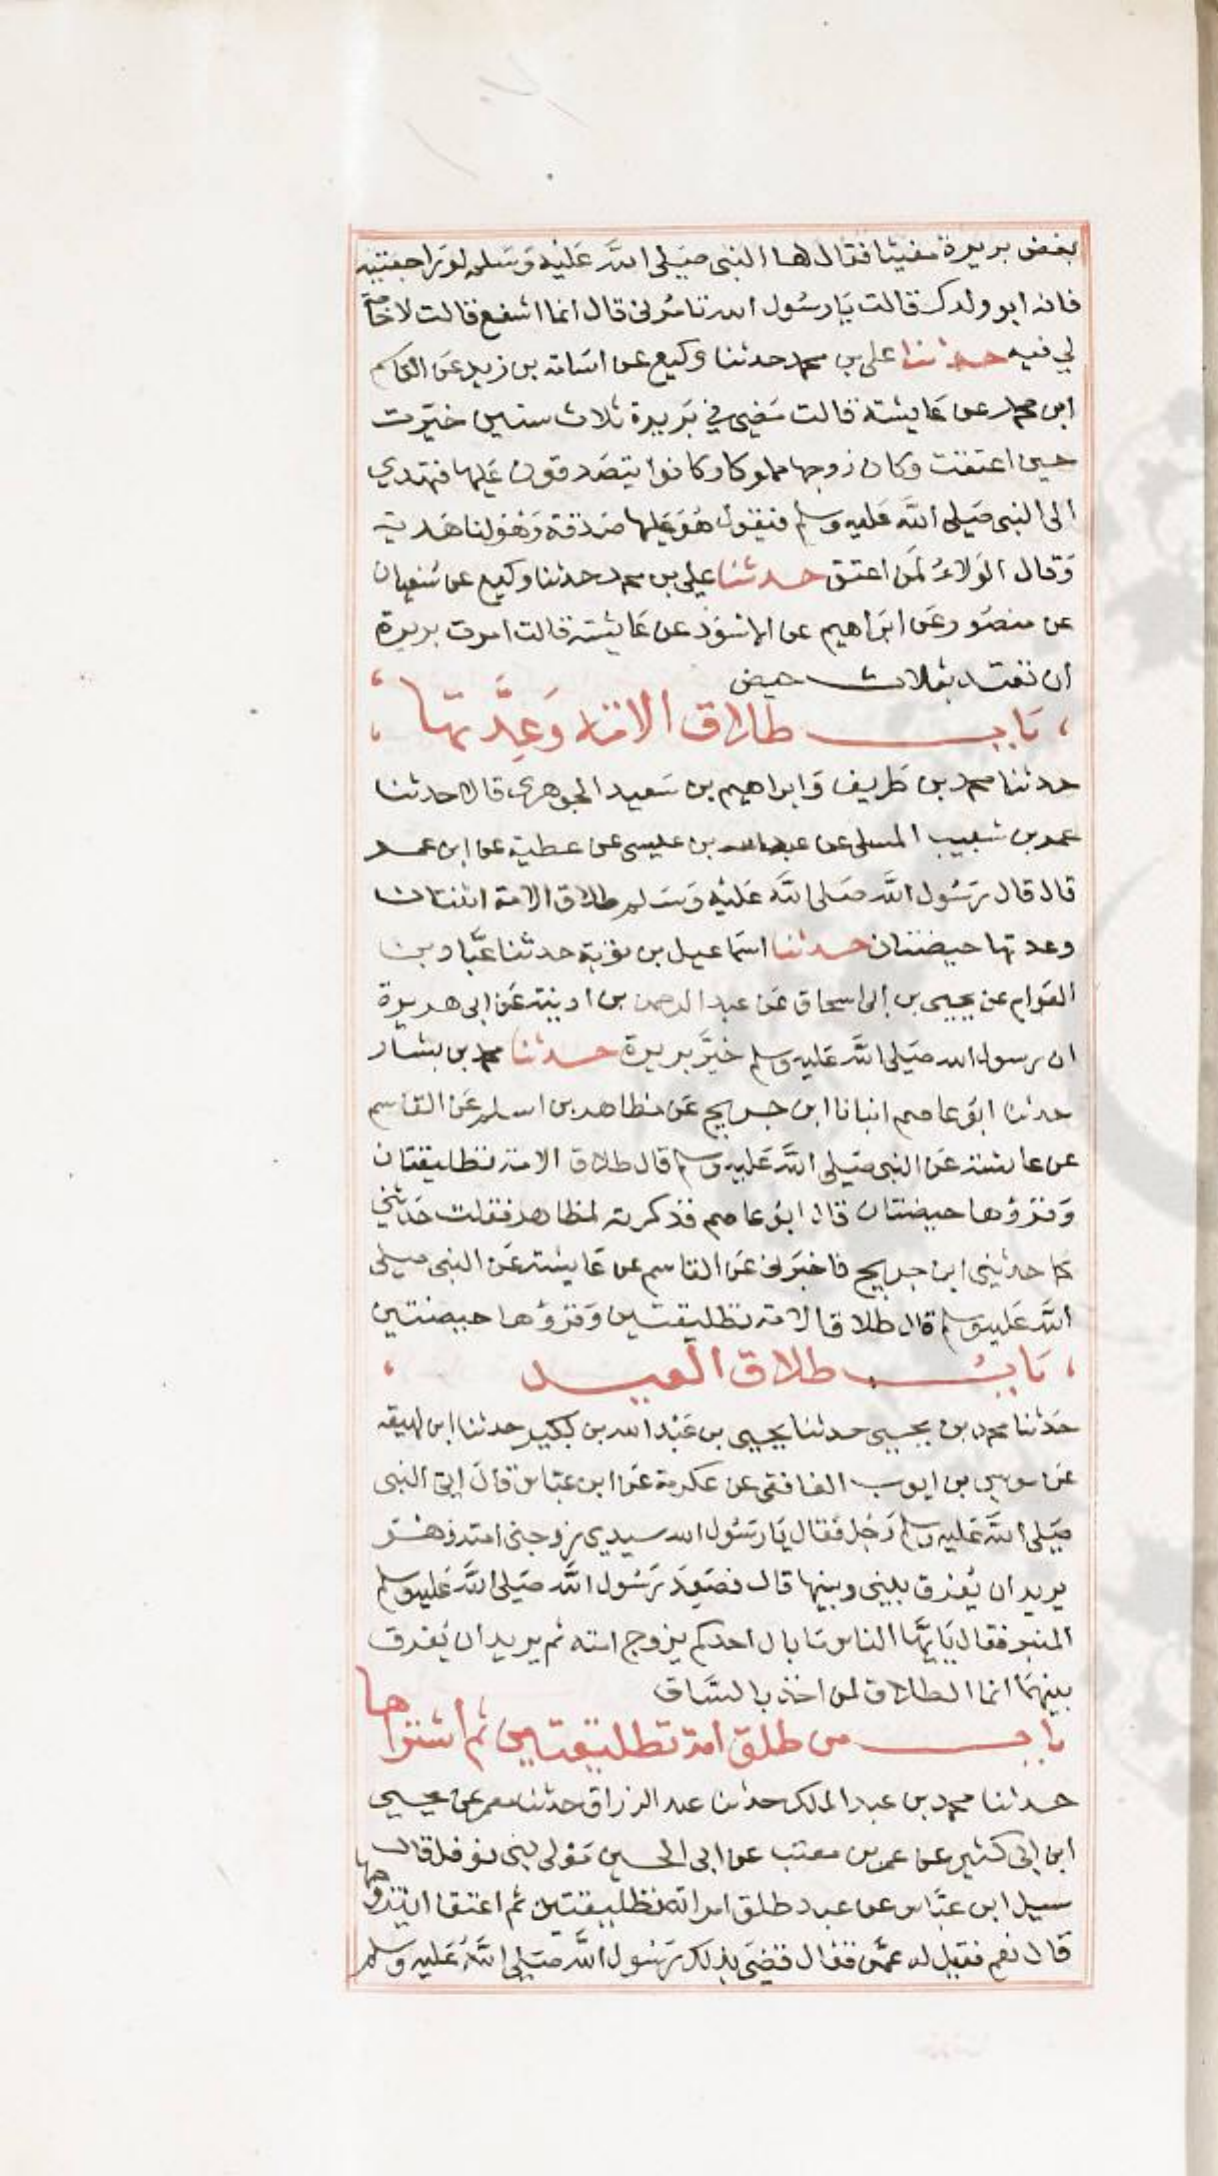 بغض بريرة مغيثا فقال لها النبي صَلى الله عَليْه وَسَلم لو رَاجعتيه
فانه ابو ولدك قالت يَا رسُول الله تامُرني قال انما اشفع قالت لا حَاجَة
لي فيه حدثنا علي بن محمد حدثنا وكيع عن اسَامة بن زيد عَن القاسم
ابن محمد عن عَايشة قالت مَضى في بَريرة ثلاث سنين خيّرت
حين اعتقت وكان زوجها مملوكا وكانوا يتصَدقون عَليها فتهدي
الى النبي صَلى الله عَليه وسلم فيقول هُوَ عَليها صَدقة وَهُوَ لنا هَدية
وَقال الوَلاءُ لمَن اعتق حدثنا علي بن محمد حدثنا وكيع عن سُفيان
عن منصُور عَن ابرَاهيم عن الاسْوَد عن عَائشة قالت امرت بريرة
ان تعتد بثلاث حيض
بَاب طلاق الامة وَعِدَّتها
حدثنا محمد بن طَريف وَابراهيم بن سَعيد الجوهري قالا حدثنا
عمر بن شبيب المسلي عن عبد الله بن عيسى عن عطية عن ابن عمر
قال قال رَسُول الله صَلى الله عَليْه وَسَلم طلاق الامة اثنتان
وعدتها حيضتان حدثنا اسمَاعيل بن توبَة حدثنا عَبَّاد بن
العَوام عن يحيى بن ابي اسحاق عَن عبد الرحمن بن اذينة عَن ابي هريرة
ان رسول الله صَلى الله عَليه وسلم خيَّر بريرة حدثنا محمد بن بشار
حدثنا ابُو عاصم انبانا ابن جريج عَن مظاهر بن اسلم عَن القاسم
عن عائشة عَن النبي صَلى الله عَليه وسلم قال طلاق الامة تطليقتان
وَقرؤها حيضتان قال ابُو عاصم فذكرته لمظاهر فقلت حَدثني
كما حدثني ابن جريج فاخبَرني عَن القاسم عن عَايشة عَن النبي صلى
الله عَليه وسلم قال طلاق الامة تطليقتين وَقرؤها حيضتين
بَابُ طلاق العبد
حَدثنا محمد بن يحيى حدثنا يحيى بن عَبْد الله بن بكير حدثنا ابن لهيعة
عَن موسى بن ايوب الغافقي عن عكرمة عَن ابن عبَاس قال اتى النبي
صَلى الله عَليه وسلم رَجُل فقال يَا رسُول الله سيدي زوجني امته وَهُو
يريد ان يُفرق بيني وبينها قال فصَعِدَ رَسُول الله صَلى الله عَليه وسلم
المنبر فقال يَا ايّها الناس مَا بال احدكم يزوج امته ثم يريد ان يُفرق
بينهمَا انما الطلاق لمن اخذ بالسَّاق
باب من طلق امة تطليقتين ثم اشتراها
حدثنا محمد بن عبد الملك حدثنا عبد الرزاق حدثنا معمر عن يحيى
ابن ابي كثير عن عمر بن معتب عن ابي الحسن مَولى بني نوفل قال
سيل ابن عبَّاس عن عبد طلق امراته تطليقتين ثم اعتقا ايتزوجها
قال نعم فقيل له عمَّن فقال قضَى بذلك رَسُول الله صَلى الله عَليه وسلم